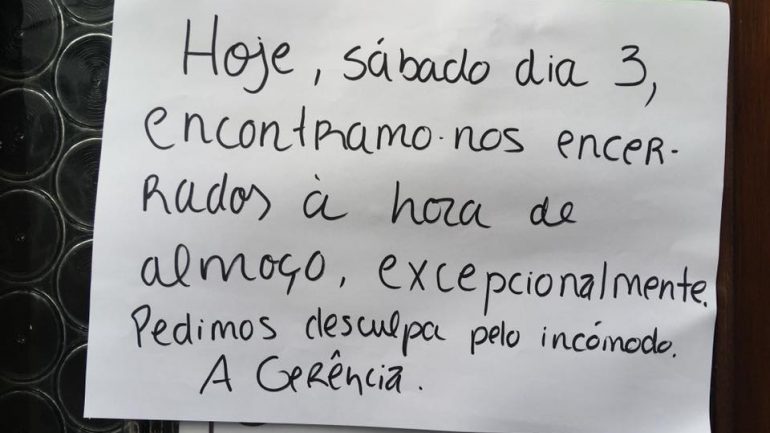 Hoje, sábado dia 3,
encontramo-nos encer-
rados à hora de
almoço, excepcionalmente.
Pedimos desculpa pelo incómodo.
A Gerência.